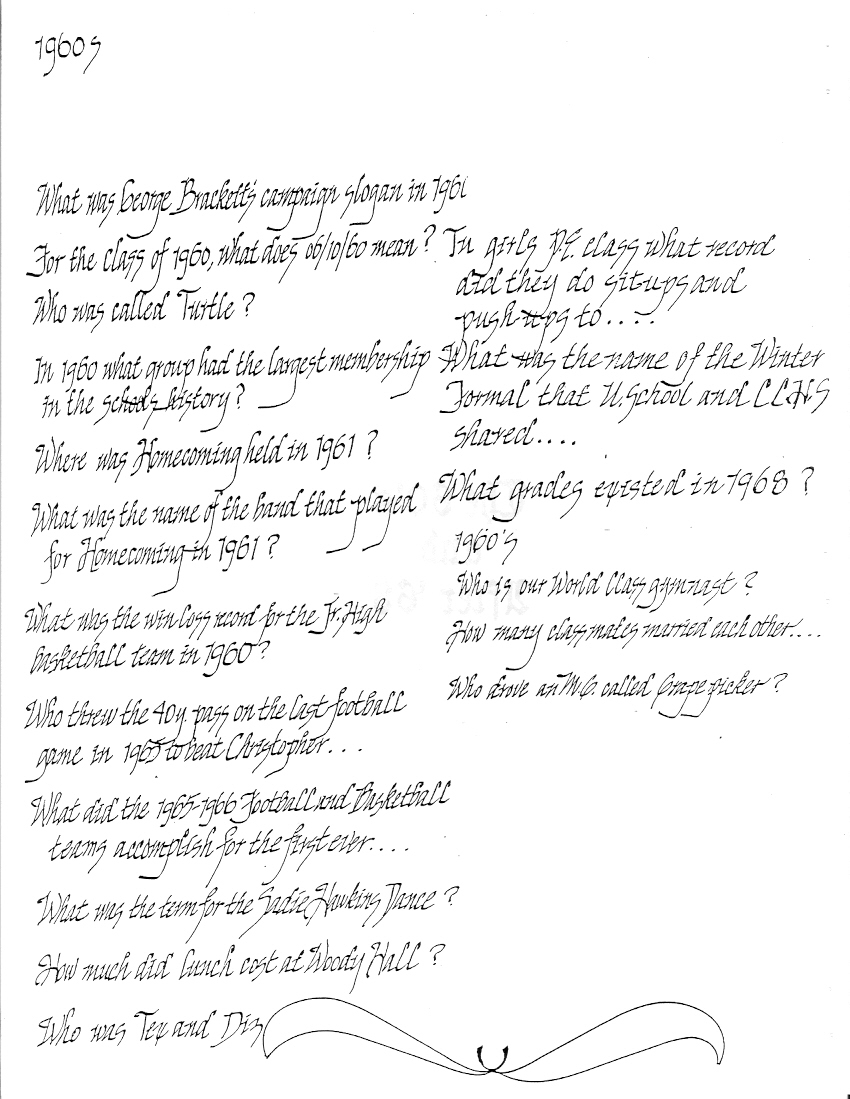 1960s
What was George Brackett's campaign slogan in 1961
For the class of 1960, what does 06/10/60 mean?
Who was called Turtle?
In 1960 what group had the largest membership
in the schools history?
Where was Homecoming held in 1961?
What was the name of the band that played
for Homecoming in 1961?
What was the win loss record for the Jr. High
basketball team in 1960?
Who threw the 40y. pass on the last football
game in 1965 to beat Christopher...
What did the 1965-1966 Football and Basketball
teams accomplish for the first ever....
What was the term for the Sadie Hawkins Dance?
How much did lunch cost at Woody Hall?
Who was Tex and Diz
In girls P.E. class what record
did they do situps and
push-ups to....
What was the name of the Winter
Formal that U. School and CCHS
shared....
What grades existed in 1968?
1960's
Who is our World Class gymnast?
How many classmates married each other....
Who drove an M.G. called Grape picker?